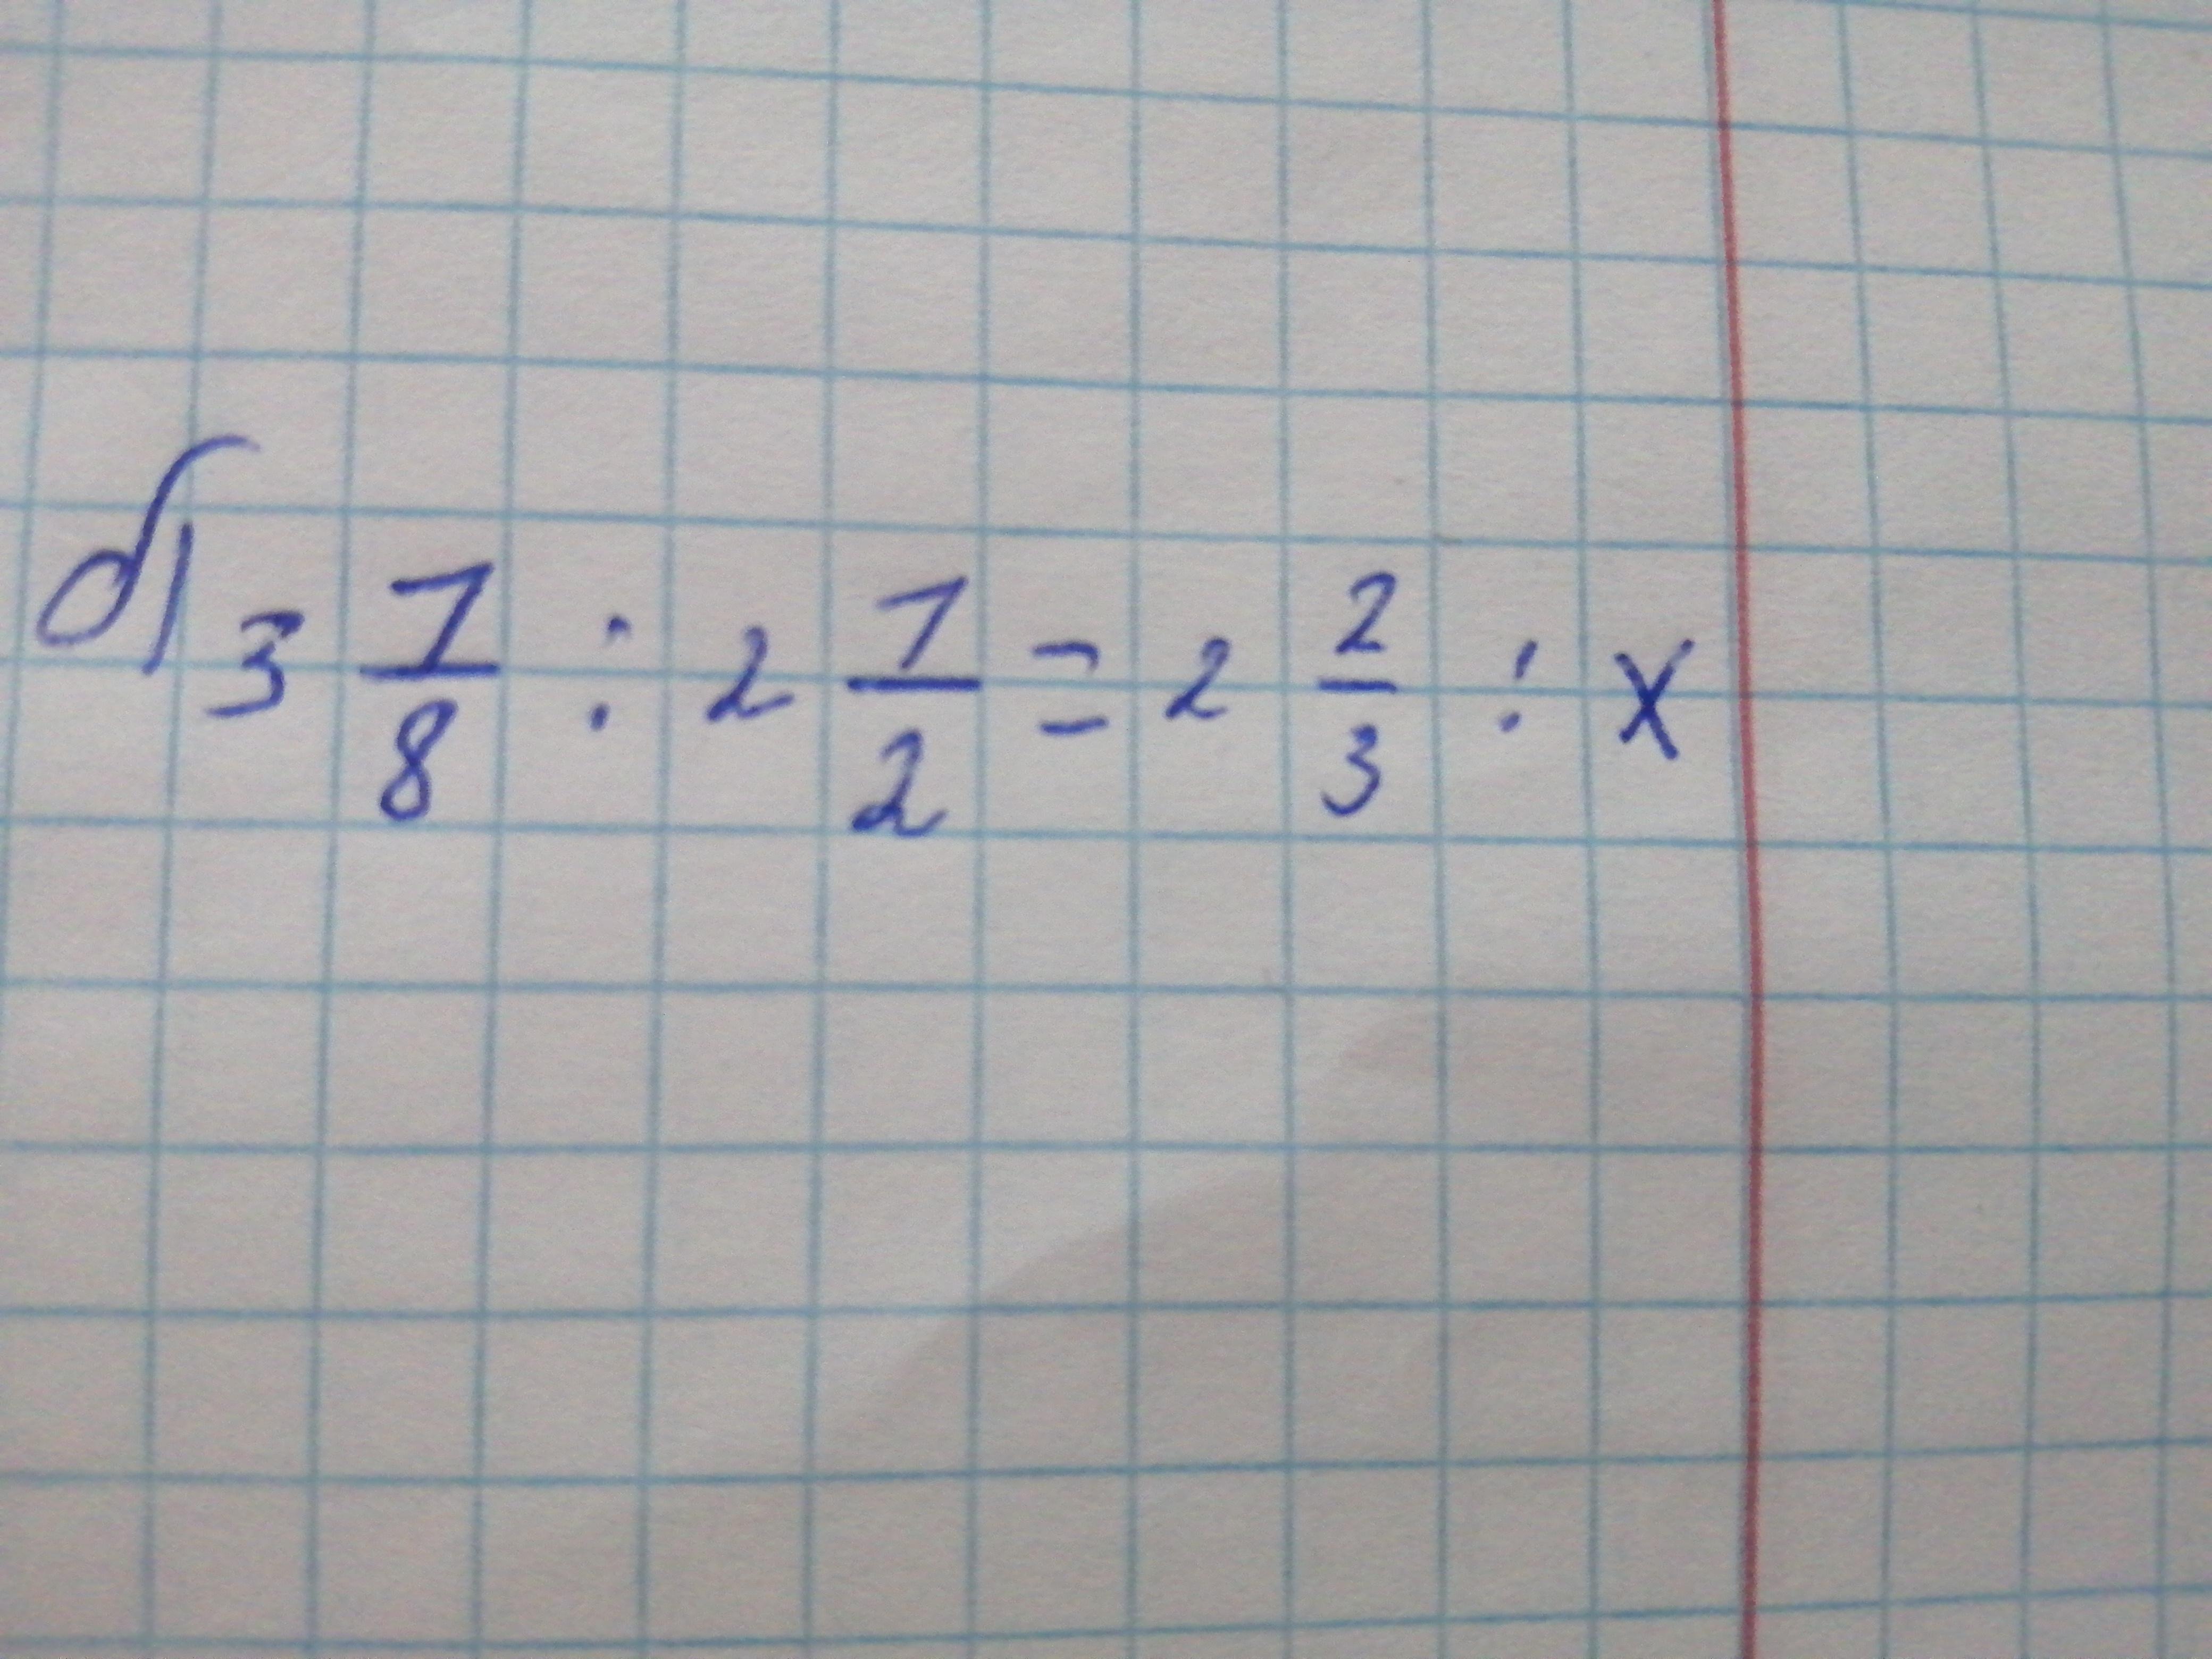 б) 3 1/8 : 2 1/2 = 2 2/3 : x